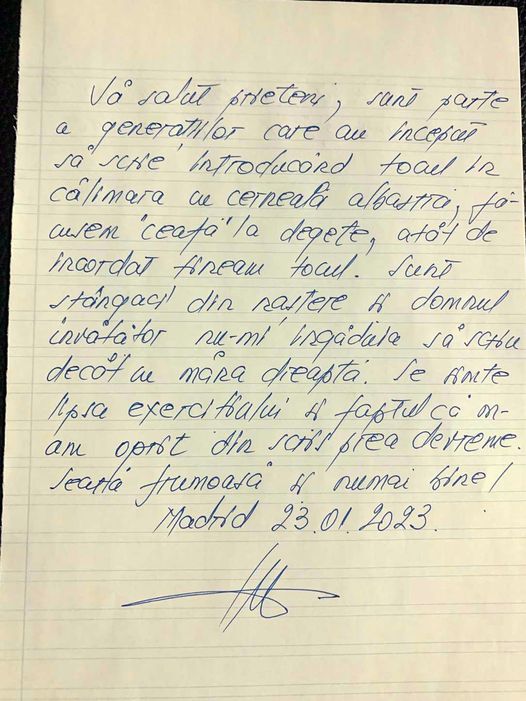 Vă salut prieteni, sunt parte
a generațiilor care au început
să scrie, introducând tocul în
călimara cu cerneală albastră, fă-
cusem "ceafă" la degete, atât de
încordat țineam tocul. Sunt
stângaci din naștere și domnul
învățător nu-mi îngăduia să scriu
decât cu mâna dreaptă. Se simte
lipsa exercițiului și faptul că m-
am oprit din scris prea devreme.
Seară frumoasă și numai bine!
Madrid 23.01.2023.